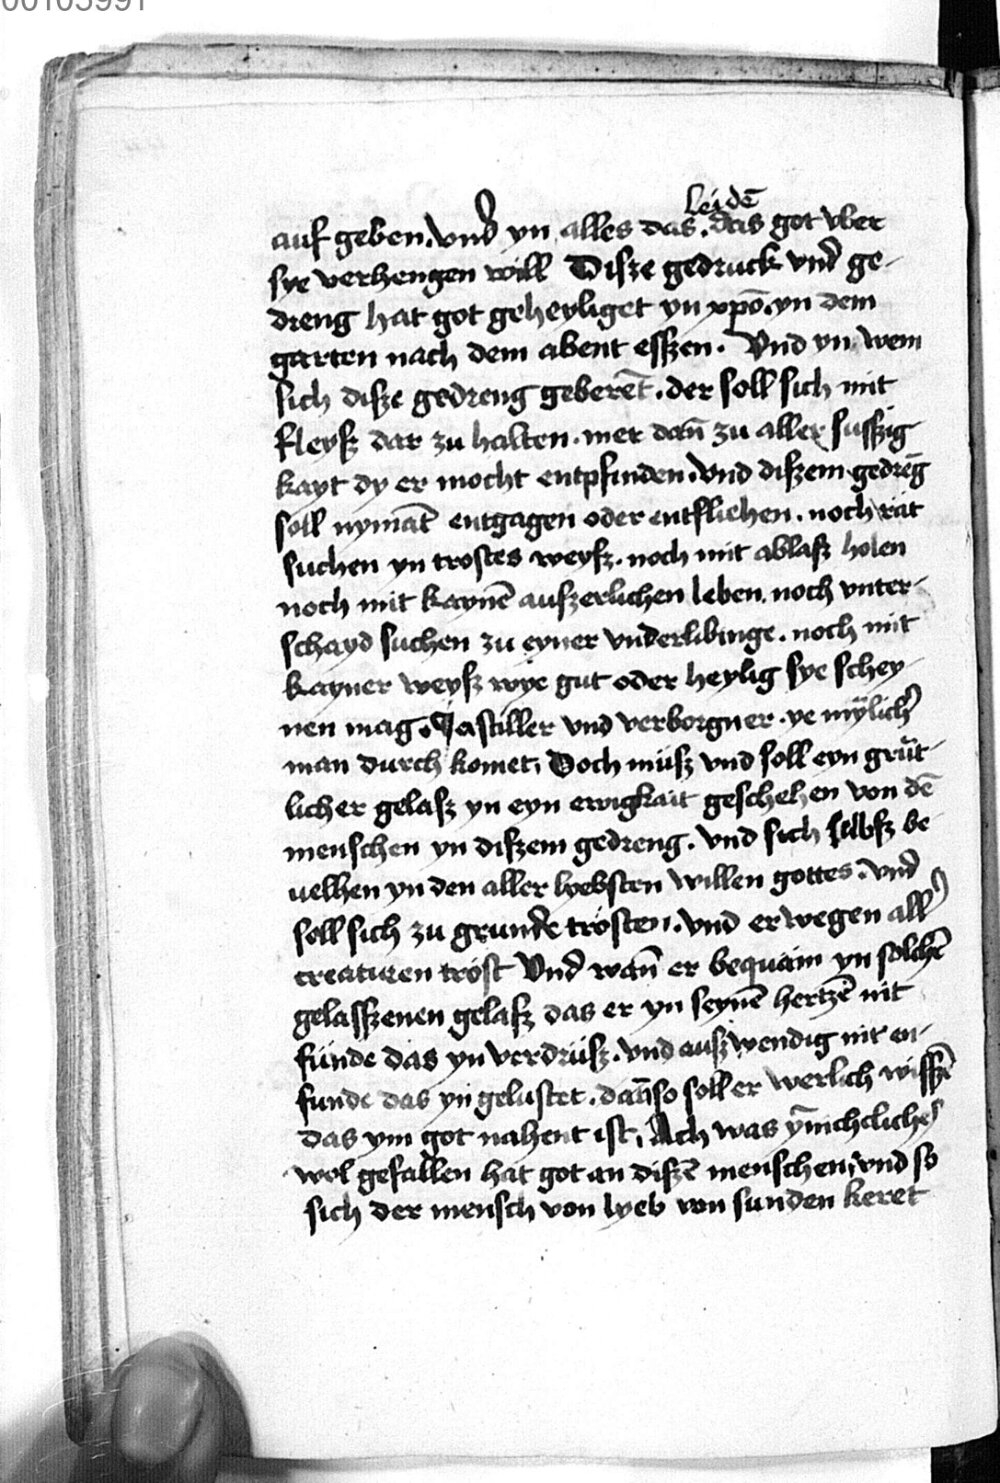 00103991
leidē
auf geben. vnd yn alles das. das got vber
sye verhengen will Disze gedruck vnd ge-
dreng hat got geheyliget yn xpō. yn dem
garten nach dem abent esszen. Vnd yn wem
sich disze gedreng geberēt. der soll sich mit
fleysz dar zu halten. mer dañ zu aller susszig-
kayt dy er mocht entpfinden. vnd diszem gedrēg
soll nymāt entgagen oder entfliehen. noch rat
suchen yn trostes weysz. noch mit ablasz holen
noch mit kaynē auszerlichen leben. noch vnter-
schayd suchen zu eyner vnderlibinge. noch mit
kayner weysz wye gut oder heylig sye schey-
nen mag. Ja stiller vnd verborgner. ye mÿlich
man durch komet, Doch müsz vnd soll eyn grūt-
licher gelasz yn eyn ewigkait geschehen von dē
menschen yn diszem gedreng. Vnd sich selbsz be-
uelhen yn den aller lyebsten willen gottes. vnd
soll sich zu grunde trösten. vnd erwegen all
creaturen tröst Vnd wañ er bequam yn solchē
gelasszenen gelasz das er yn seynē hertzē nit
fünde das yn verdrüsz. vnd auszwendig nit en-
funde das yn gelustet. dañ so soll er werlich wisszē
das ym got nahent ist, Ach was ȳnichcliches
wol gefallen hat got an diszē menschen, vnd so
sich der mensch von lyeb von sunden keret